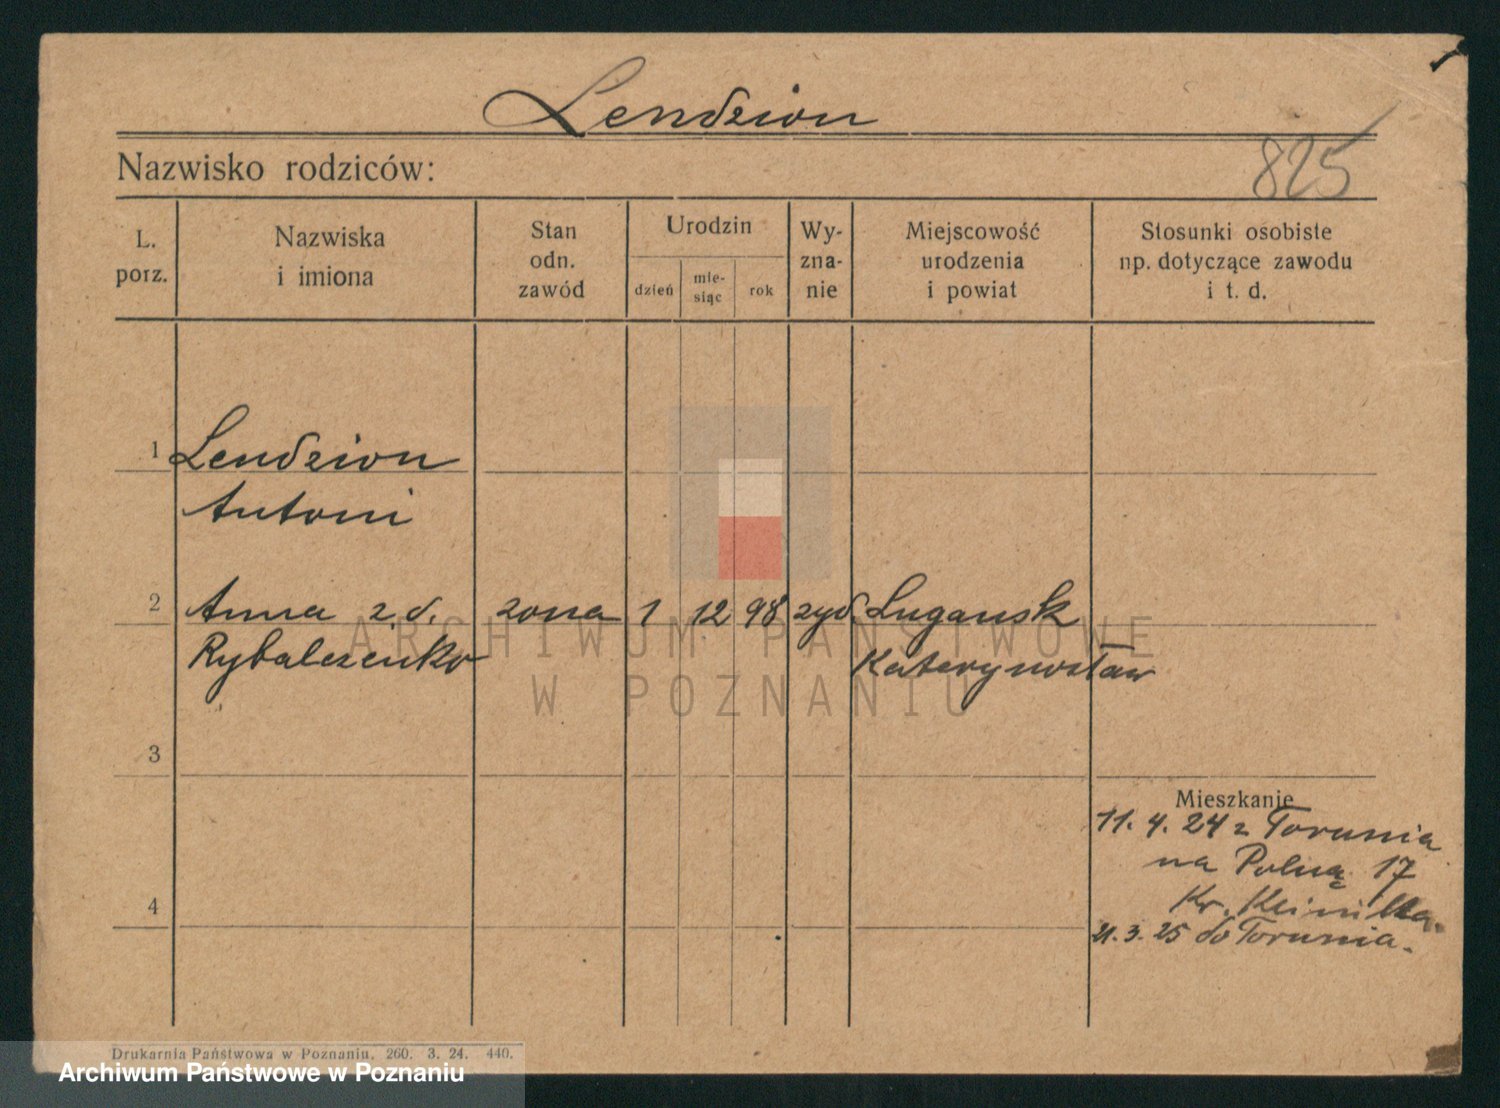 Lendzion
Nazwisko rodziców:
825
L. porz.
Nazwiska i imiona
Stan odn. zawód
Urodzin
dzień
mie-
siąc
rok
Wy-
zna-
nie
Miejscowość urodzenia i powiat
Stosunki osobiste np. dotyczące zawodu i t. d.
1 Lendzion
Antoni
2 Anna z d. żona 1 12 98 żyd. Lugansk
Rybalczenko Katerynosław
ARCHIWUM PAŃSTWOWE
W POZNANIU
3
Mieszkanie
11. 4. 24 z Torunia
na Polną 17
4 Kr.
21. 3. 25 do Torunia.
Drukarnia Państwowa w Poznaniu. 260. 3. 24. 440.
Archiwum Państwowe w Poznaniu